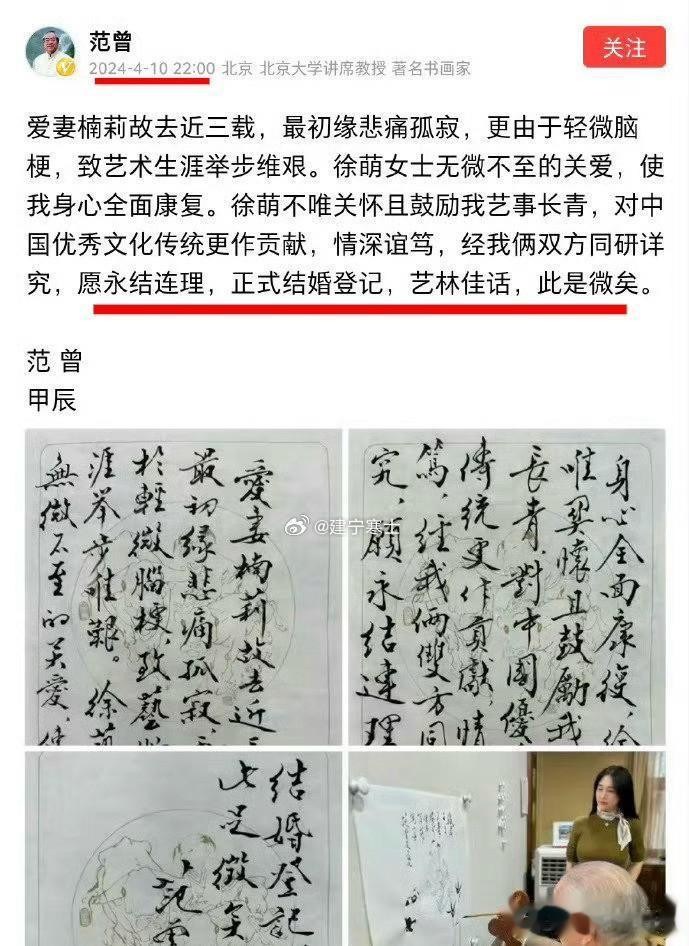 范曾
关注
2024-4-10 22:00 北京 北京大学讲席教授 著名书画家
爱妻楠莉故去近三载，最初缘悲痛孤寂，更由于轻微脑
梗，致艺术生涯举步维艰。徐萌女士无微不至的关爱，使
我身心全面康复。徐萌不唯关怀且鼓励我艺事长青，对中
国优秀文化传统更作贡献，情深谊笃，经我俩双方同研详
究，愿永结连理，正式结婚登记，艺林佳话，此是微矣。
范 曾
甲辰
愛妻楠莉故去近三
最初緣悲痛孤寂，
於輕微腦梗，致藝
涯举步唯艱。徐萌
無微不至的关愛，使
@建宁寒士
身心全面康復，徐
唯関懷且鼓勵我
長青，對中國優
傳統更作貢獻，情
篤，經我俩雙方同
究，願永结連理
结婚登記，
此是微矣
范曾